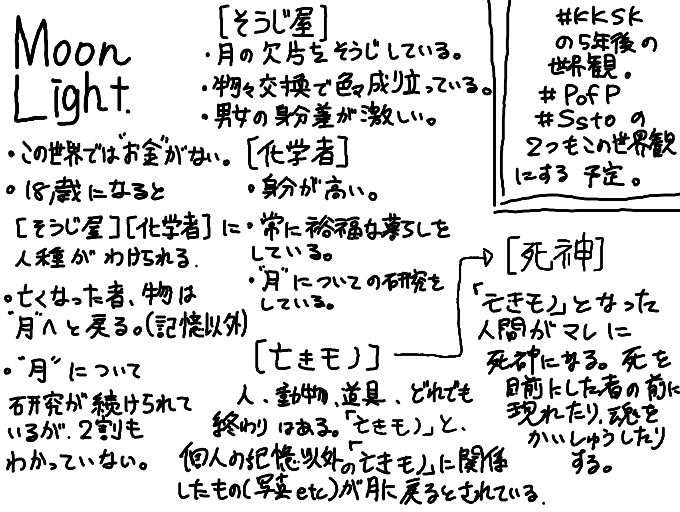 Moon
Light.
・この世界では"お金"がない。
・18歳になると
[そうじ屋][化学者]に
人種がわけられる.
・亡くなった者、物は
"月"へと戻る。(記憶以外)
・"月"について
研究が続けられて
いるが、2割も
わかっていない。
[そうじ屋]
・月の欠片をそうじしている。
・物々交換で色々成り立っている。
・男女の身分差が激しい。
[化学者]
・身分が高い。
・常に裕福な暮らしを
している。
・"月"についての研究を
している。
[亡きモノ]
人、動物、道具、どれでも
終わりはある。「亡きモノ」と、
個人の記憶以外の「亡きモノ」に関係
したもの(写真etc)が月に戻るとされている.
[死神]
「亡きモノ」となった
人間がマレに
死神になる。死を
目前にした者の前に
現れたり、魂を
かいしゅうしたり
する。
#KKSK
の5年後の
世界観。
#PofP
#Sstoの
2つもこの世界観
にする予定。